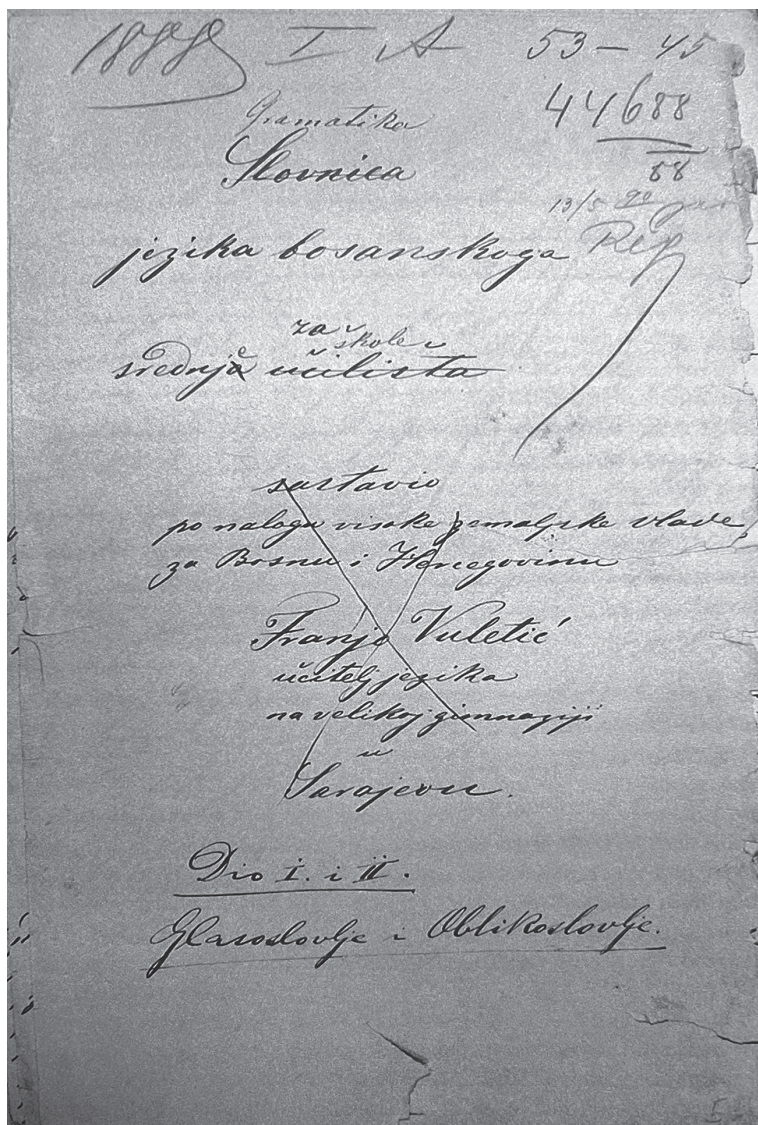 1888 I A 53 – 45
44688
88
Gramatika
Slovnica
13/5 90
jezika bosanskoga Reg
za škole
srednja učilista
sastavio
po nalogu visoke zemaljske vlade
za Bosnu i Hercegovinu
Franjo Vuletić
učitelj jezika
na velikoj gimnaziji
u
Sarajevu.
Dio I. i II.
Glasoslovlje i Oblikoslovlje.